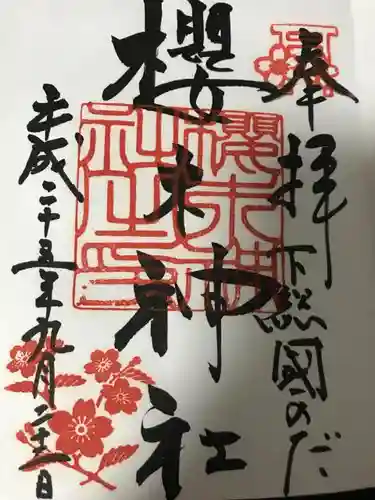 奉拝
下総國のだ
櫻木神社
平成二十五年九月二十二日